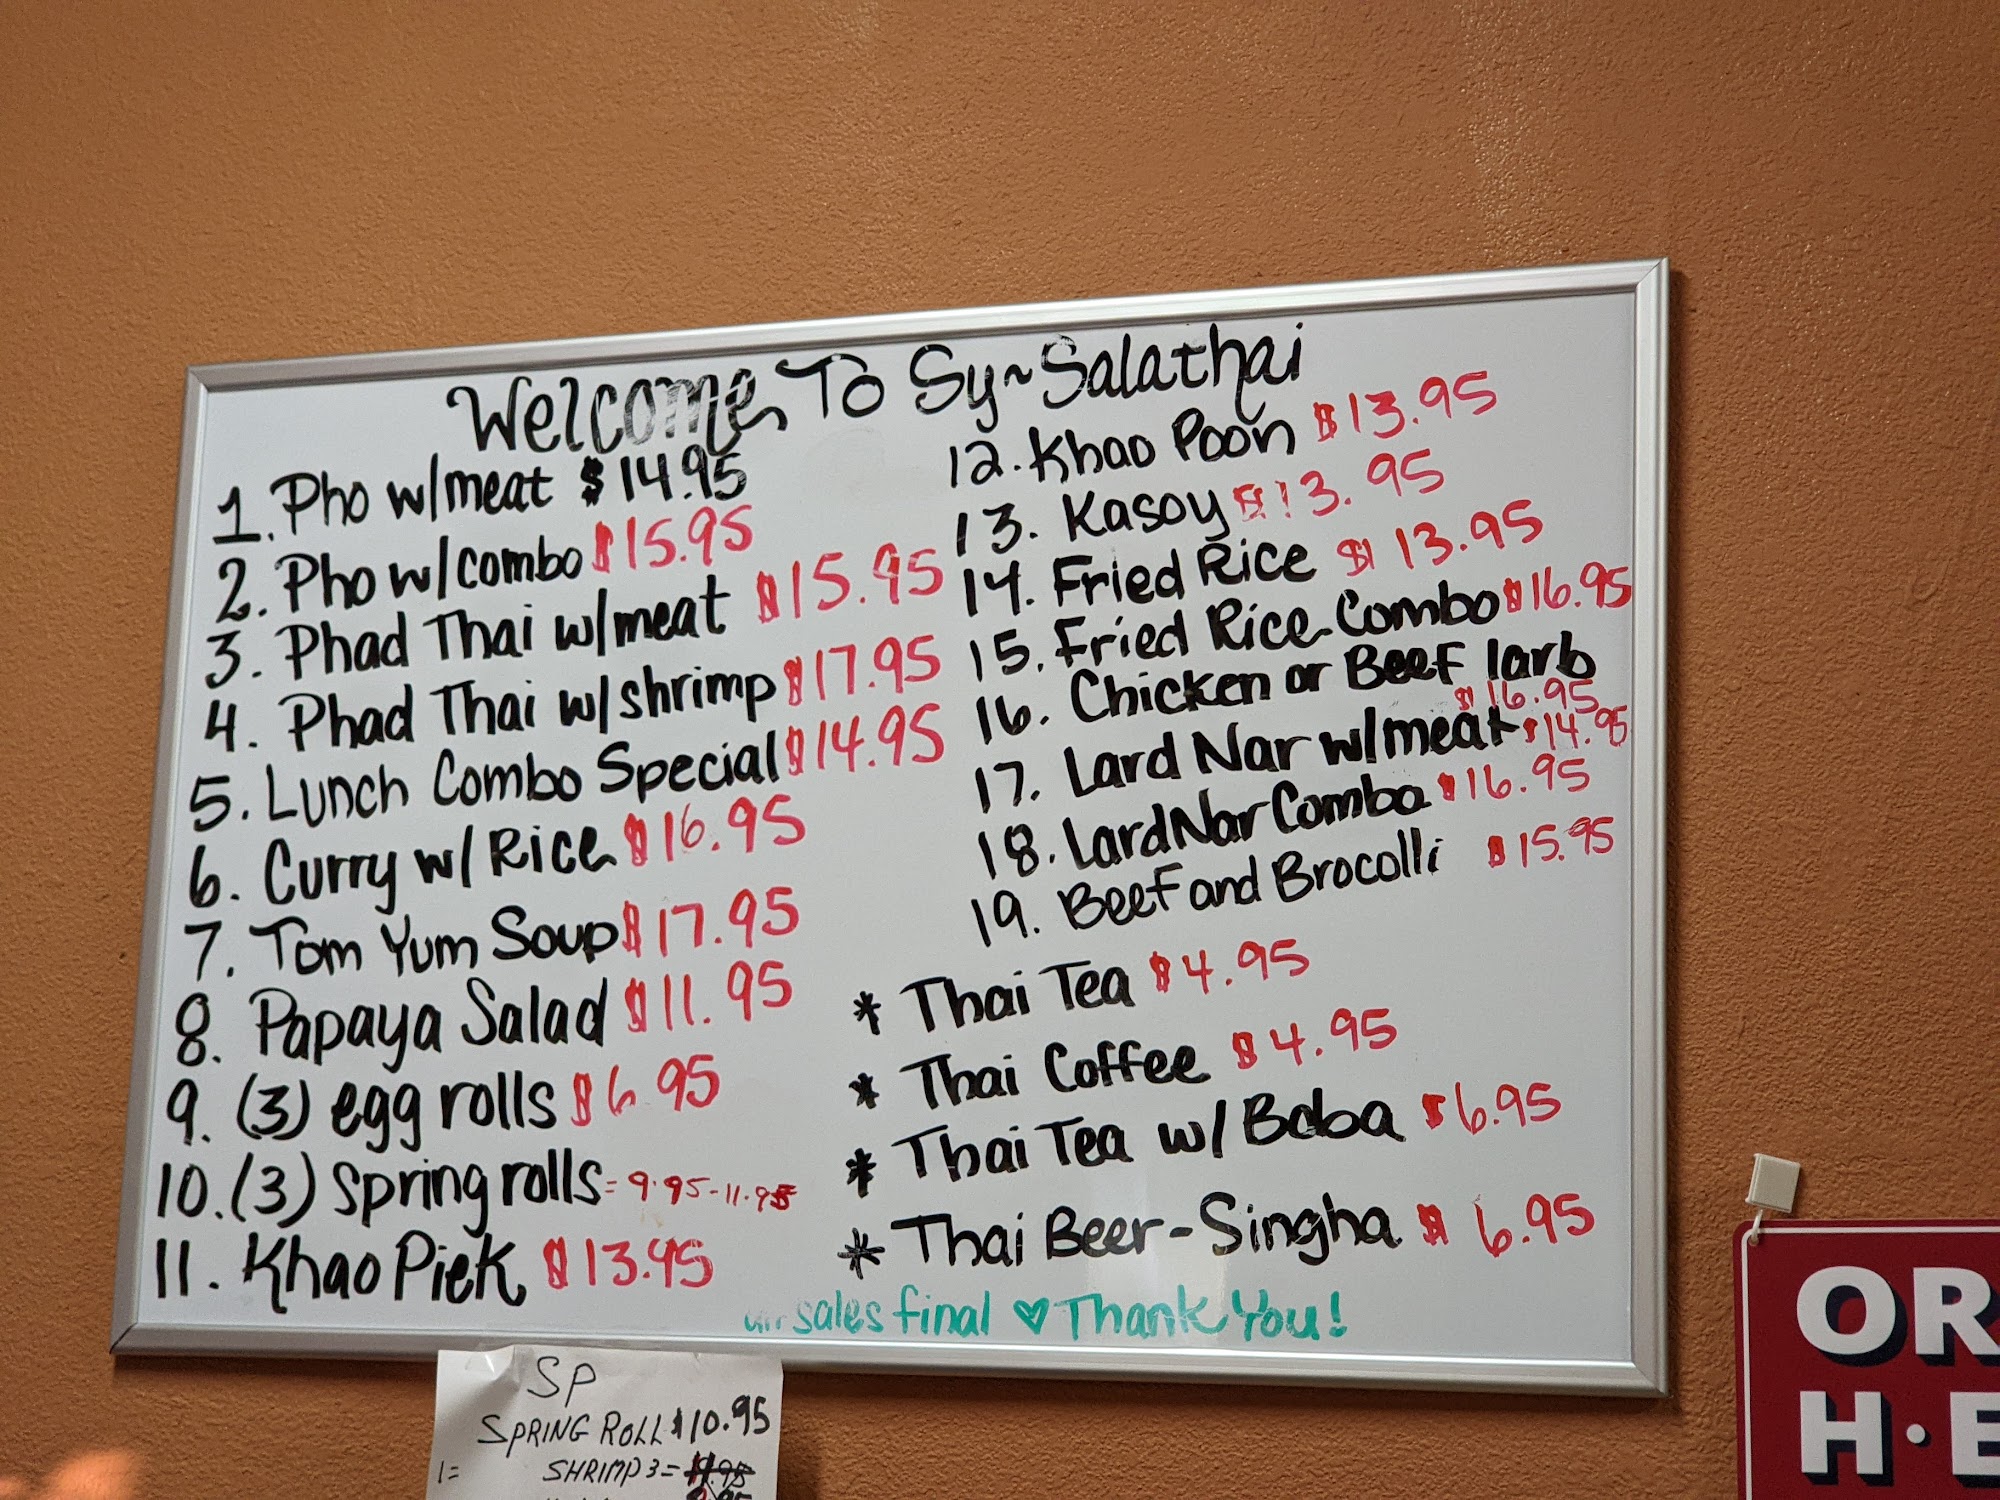 Welcome To Sy~Salathai
1. Pho w/meat $14.95
2. Pho w/combo $15.95
3. Phad Thai w/meat $15.95
4. Phad Thai w/shrimp $17.95
5. Lunch Combo Special $14.95
6. Curry w/ Rice $16.95
7. Tom Yum Soup $17.95
8. Papaya Salad $11.95
9. (3) egg rolls $6.95
10. (3) Spring rolls = 9.95-11.95
11. Khao Piek $13.95
12. Khao Poon $13.95
13. Kasoy $13.95
14. Fried Rice $13.95
15. Fried Rice Combo $16.95
16. Chicken or Beef larb
$16.95
17. Lard Nar w/meat $14.95
18. Lard Nar Combo $16.95
19. Beef and Brocolli $15.95
* Thai Tea $4.95
* Thai Coffee $4.95
* Thai Tea w/ Boba $6.95
* Thai Beer-Singha $6.95
all sales final ♡ Thank You!
SP
SPRING ROLL $10.95
1= SHRIMP 3=
OR
H·E